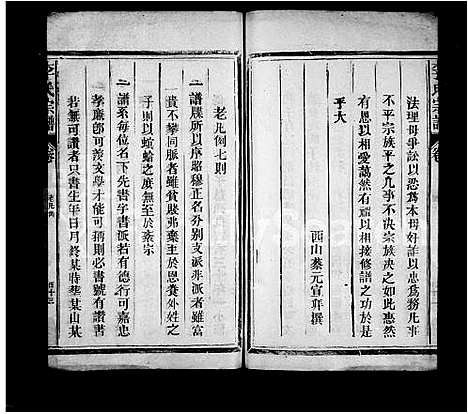 法理毋爭訟以恐為本毋好訟以忠為務凡事
不平宗族平之几事不决宗族决之如此惠然
有恩以相愛藹然有禮以相接修譜之功於是
乎大
西山蔡元宣拜撰
老凡例七則
一譜牒所以序昭穆正名分别支派非派者雖富
貴不攀同脈者雖貧賤弗棄至於恩養外姓之
子則以螟蛉之庶無至於紊宗
一譜系每位名下先書字書派若有德行可嘉忠
孝廉節可羨文學才能可稱則必書號有讚書
若無可讚者只書生年日月終某時葬某山某
李氏宗譜
卷
老凡例
李氏宗譜
卷